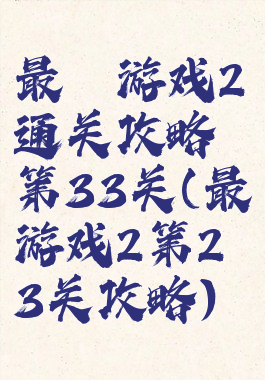 最 游戏2
通关攻略
第33关(最
游戏2第2
3关攻略)